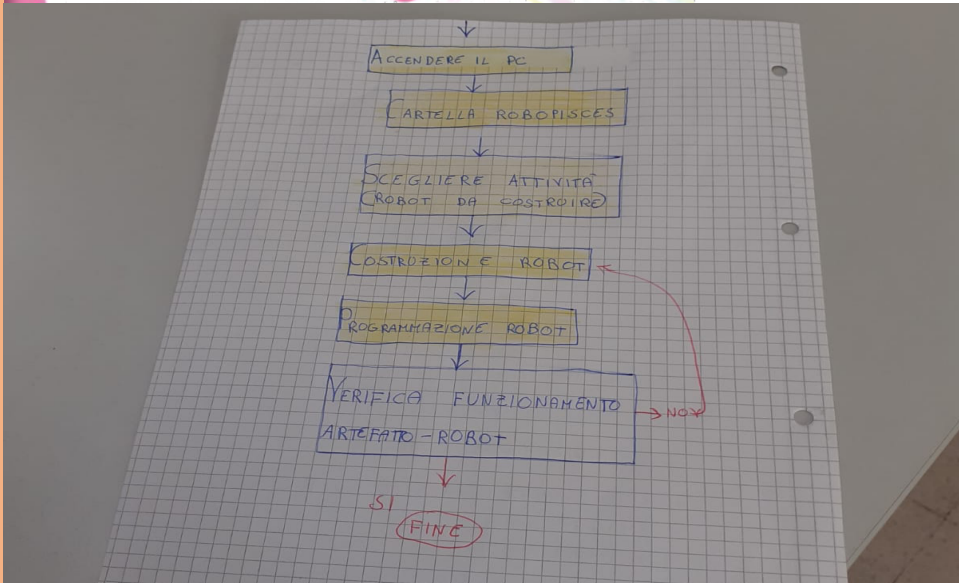 ACCENDERE IL PC
CARTELLA ROBOPISCES
SCEGLIERE ATTIVITÀ
(ROBOT DA COSTROIRE)
COSTRUZIONE ROBOT
PROGRAMMAZIONE ROBOT
VERIFICA FUNZIONAMENTO
ARTEFATTO-ROBOT
NO
SI
FINE